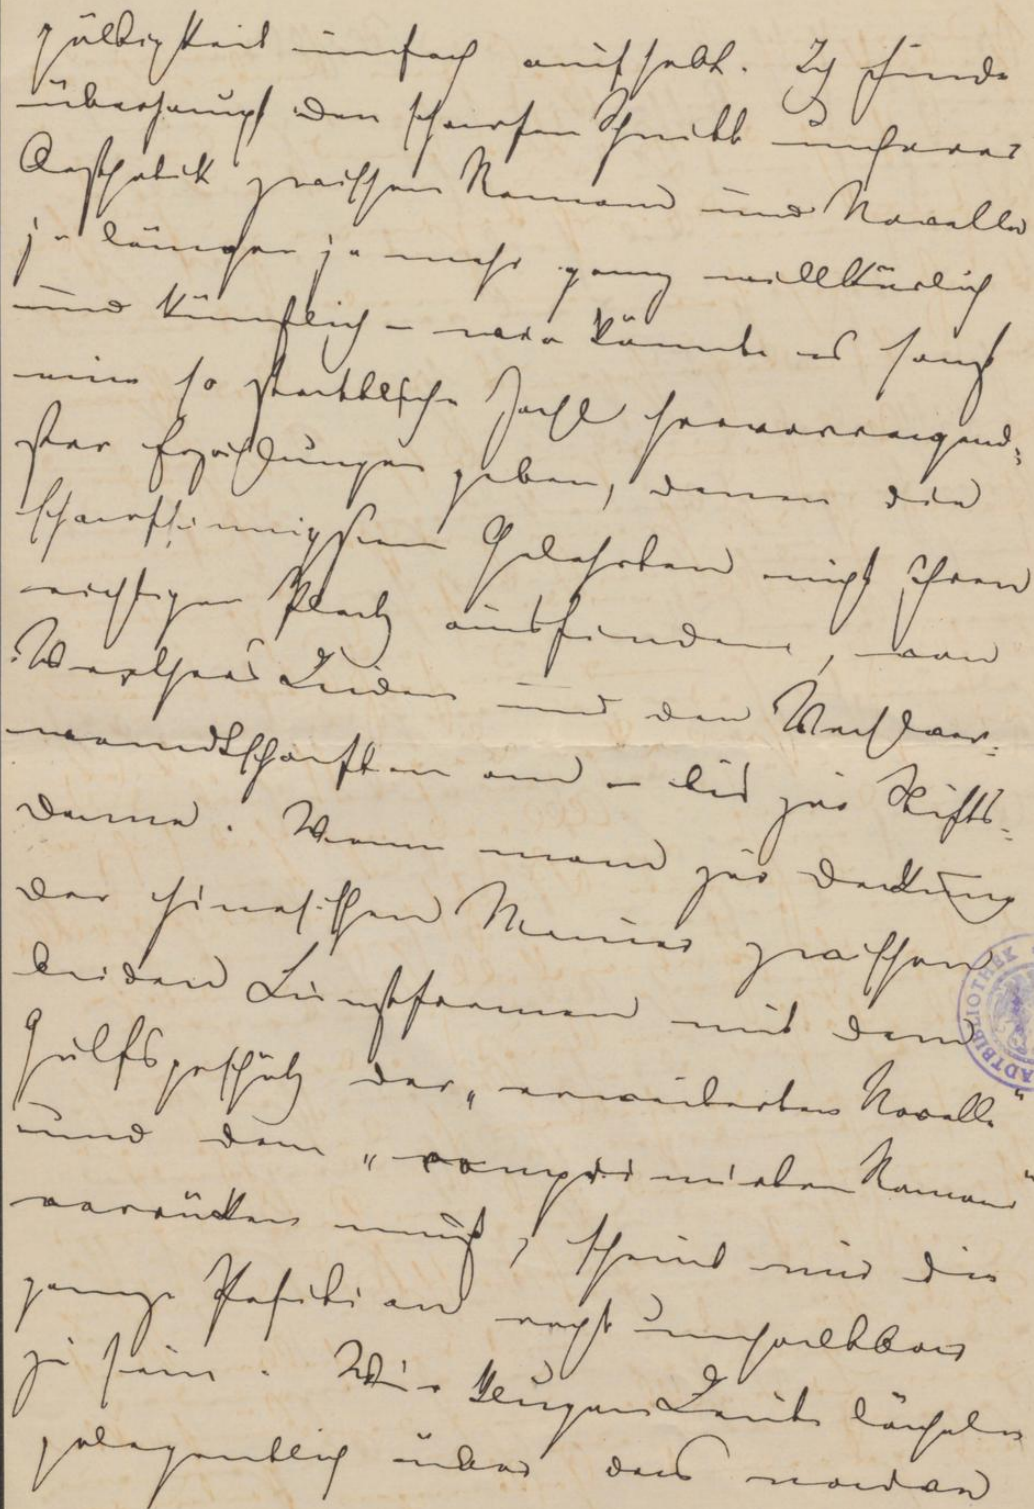 gültigkeit einfach aufhebt. Ich finde
überhaupt den scharfen Schnitt unserer
Aesthetik zwischen Roman und Novelle
je länger je mehr ganz willkürlich
und künstlich – wie könnte es sonst
eine so stattliche Zahl hervorragend-
ster Erzählungen geben, denen die
scharfsinnigsten Gelehrten nicht ihren
richtigen Platz ausfinden, von
Werthers Leiden und den Wahlver-
wandtschaften an – bis zur Stifts-
dame. Wenn man zur Deckung
der chinesischen Mauer zwischen
beiden Kunstformen mit dem
Hülfsgeschütz der „erweiterten Novelle"
und dem „comprimirten Roman"
vorrücken muß, scheint mir die
ganze Position recht unhaltbar
zu sein. Wir klugen Leute lächeln
gelegentlich über das
STADTBIBLIOTHEK